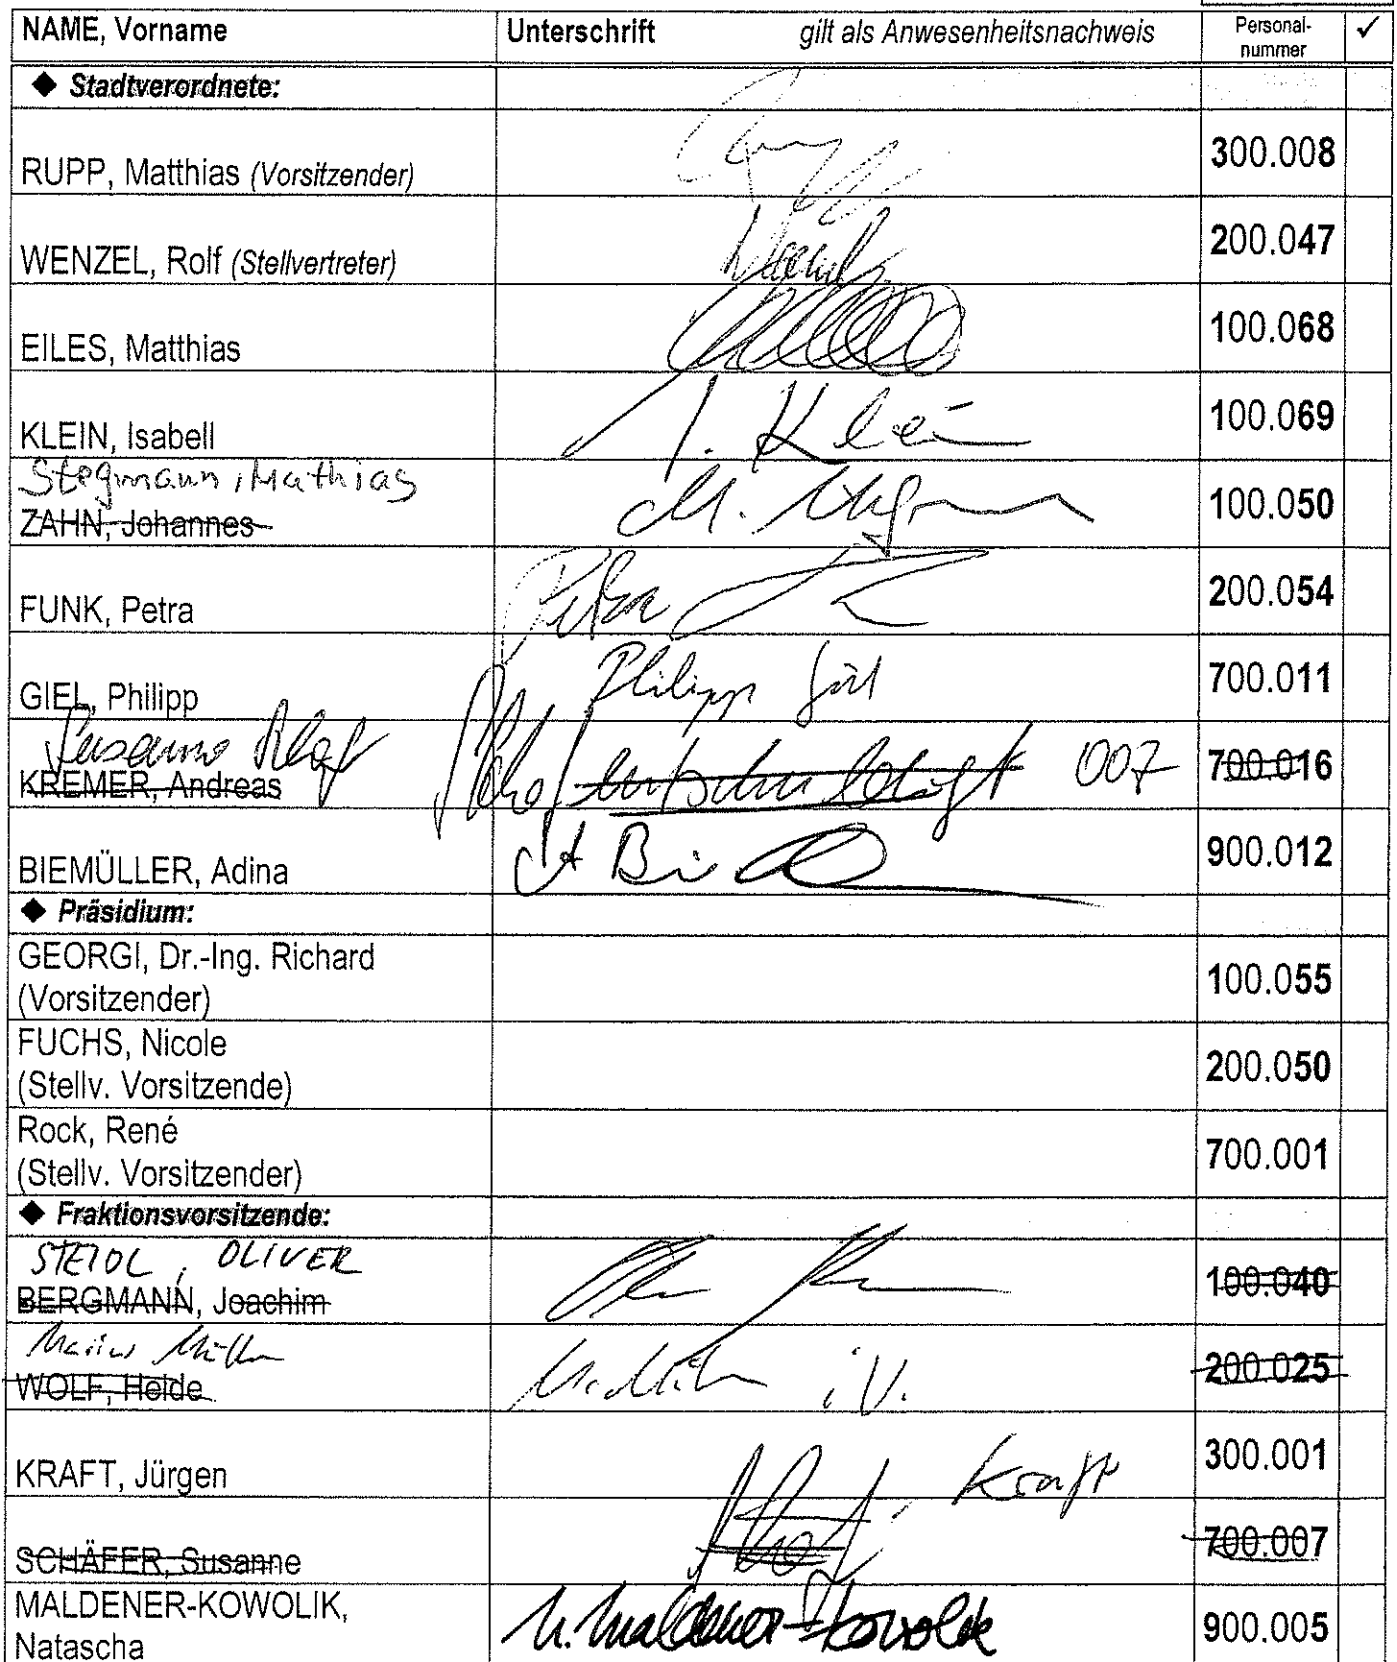 NAME, Vorname Unterschrift gilt als Anwesenheitsnachweis Personal-nummer ✓
◆ Stadtverordnete:
RUPP, Matthias (Vorsitzender) 300.008
WENZEL, Rolf (Stellvertreter) 200.047
EILES, Matthias 100.068
KLEIN, Isabell I. Klein 100.069
Stegmann, Mathias
ZAHN, Johannes 100.050
FUNK, Petra Petra 200.054
GIEL, Philipp Philipp Giel 700.011
Susanne
KREMER, Andreas entschuldigt 007 700.016
BIEMÜLLER, Adina 900.012
◆ Präsidium:
GEORGI, Dr.-Ing. Richard
(Vorsitzender) 100.055
FUCHS, Nicole
(Stellv. Vorsitzende) 200.050
Rock, René
(Stellv. Vorsitzender) 700.001
◆ Fraktionsvorsitzende:
STEIDL, OLIVER
BERGMANN, Joachim 100.040
Marius Müller
WOLF, Heide i.V. 200.025
KRAFT, Jürgen Kraft 300.001
SCHÄFER, Susanne 700.007
MALDENER-KOWOLIK,
Natascha N. Maldener-Kowolik 900.005